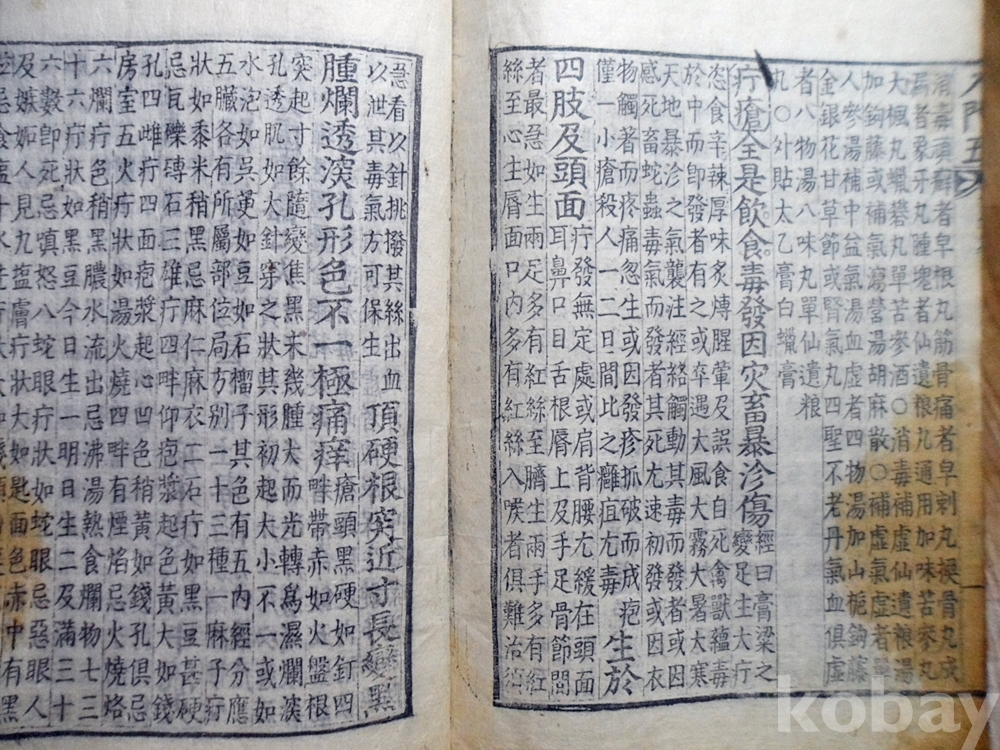 大楓丸蠟礬丸單苦參酒○消毒補虛仙遺粮湯
加鉤藤或補氣瀉營湯胡麻散○補虛氣虛者單
人參湯補中益氣湯血虛者四物湯加山梔鉤藤
金銀花甘草節或腎氣丸四聖不老丹氣血俱虛
者八物湯八味丸單仙遺粮
丸○外貼太乙膏白蠟膏
疔瘡全是飮食毒發因灾畜暴沴傷經曰膏梁之
變足生大疔
恣食辛辣厚味炙煿腥葷及誤食自死禽獸蘊毒
於中而卽發者有之或卒遇大風大霧大暑大寒
天地暴沴之氣襲注經絡觸動其毒而發者或因
感死畜蛇蟲毒氣而發者其死尢速初發或因衣
物觸著而疼痛忽生或因發疹抓破而成疱
僅一小瘡殺人一二日間比之癰疽尢毒
生於
四肢及頭面疔發無定處或肩背腰尢緩在頭面
耳鼻口目舌根脣上及手足骨節間
者最急如生兩足多有紅絲至臍生兩手多有紅
絲至心生脣面口內多有紅絲入喉者俱難治
急看以針挑撥其絲出血
以泄其毒氣方可保生
頂硬根窮近寸長變黑
腫爛透深孔形色不一極痛痒瘡頭黑硬如釘四
畔帶赤如火盤根
突起寸餘隨變焦黑未幾腫大而光轉爲濕爛深
孔透肌如大針穿之狀其形初起大小不一或如
水泡或如吳萸如豆如石榴子其色有五內經分應
五臟各有所屬部位局方別一十三種一麻子疔
狀如黍米稍黑忌麻仁麻衣二石疔如黑豆甚硬
忌瓦礫磚石三雄疔四畔仰疱漿起色黃大如錢
孔四雌疔四面疱漿起心凹色稍黃如錢孔俱忌
房室五火疔狀如湯火燒四畔有煙焰忌火燒烙
六爛疔色稍黑膿水流出忌沸湯熱食爛物七三
十六疔狀如黑豆今日生一明日生二及滿三十
六數卽死忌愼怒八蛇眼疔狀如蛇眼忌惡眼人
及嫉妬人見九塩膚疔狀大如匙面色赤中有黑
kobay